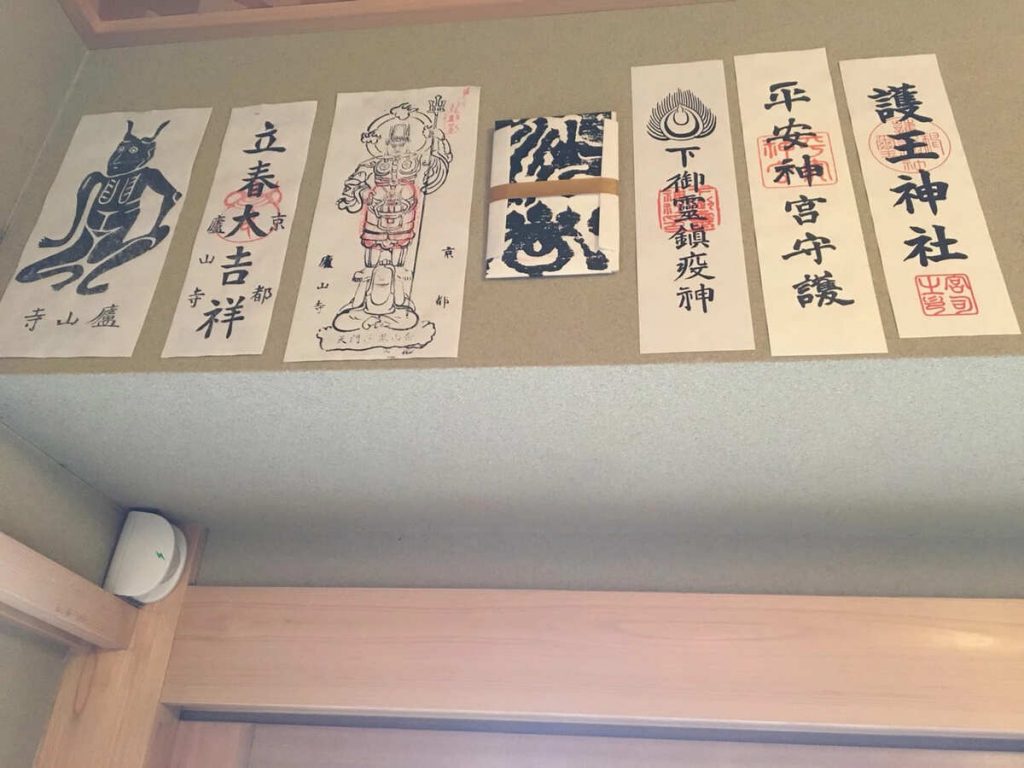 廬山寺
立春大吉祥
京都
廬山寺
京都
廬山寺
下御霊鎮疫神
平安神宮守護
護王神社
宮司之印